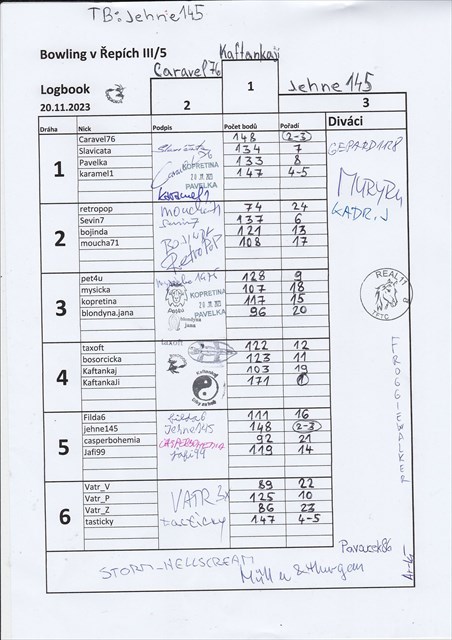 TB: Jehne145
Bowling v Řepích III/5
Kaftankaji
Caravel76
Jehne 145
Logbook
20.11.2023
2
1
3
Dráha Nick Podpis Počet bodů Pořadí Diváci
1
Caravel76 148 2-3
Slavicata 134 7
Pavelka 133 8
karamel1 147 4-5
KOPRETINA
PAVELKA
karamel1
GEPARD1128
KADR.J
2
retropop 74 24
Sevin7 137 6
bojinda 121 13
moucha71 108 17
moucha71
sevin7
RetroPoP
3
pet4u 128 9
mysicka 107 18
kopretina 117 15
blondyna.jana 96 20
KOPRETINA
PAVELKA
blondyna
jana
REALIT
TETČ
4
taxoft 122 12
bosorcicka 123 11
Kaftankaj 103 19
KaftankaJi 171 1
taxoft
Kaftankaj
FROGGIEWALKER
5
Filda6 111 16
jehne145 148 2-3
casperbohemia 92 21
Jafi99 119 14
filda6
Jehne145
CASPERBOHEMIA
Jafi99
6
Vatr_V 89 22
Vatr_P 125 10
Vatr_Z 86 23
tasticky 147 4-5
VATR 3x
tasticky
Pavoucek86
STORM_HELLSCREAM